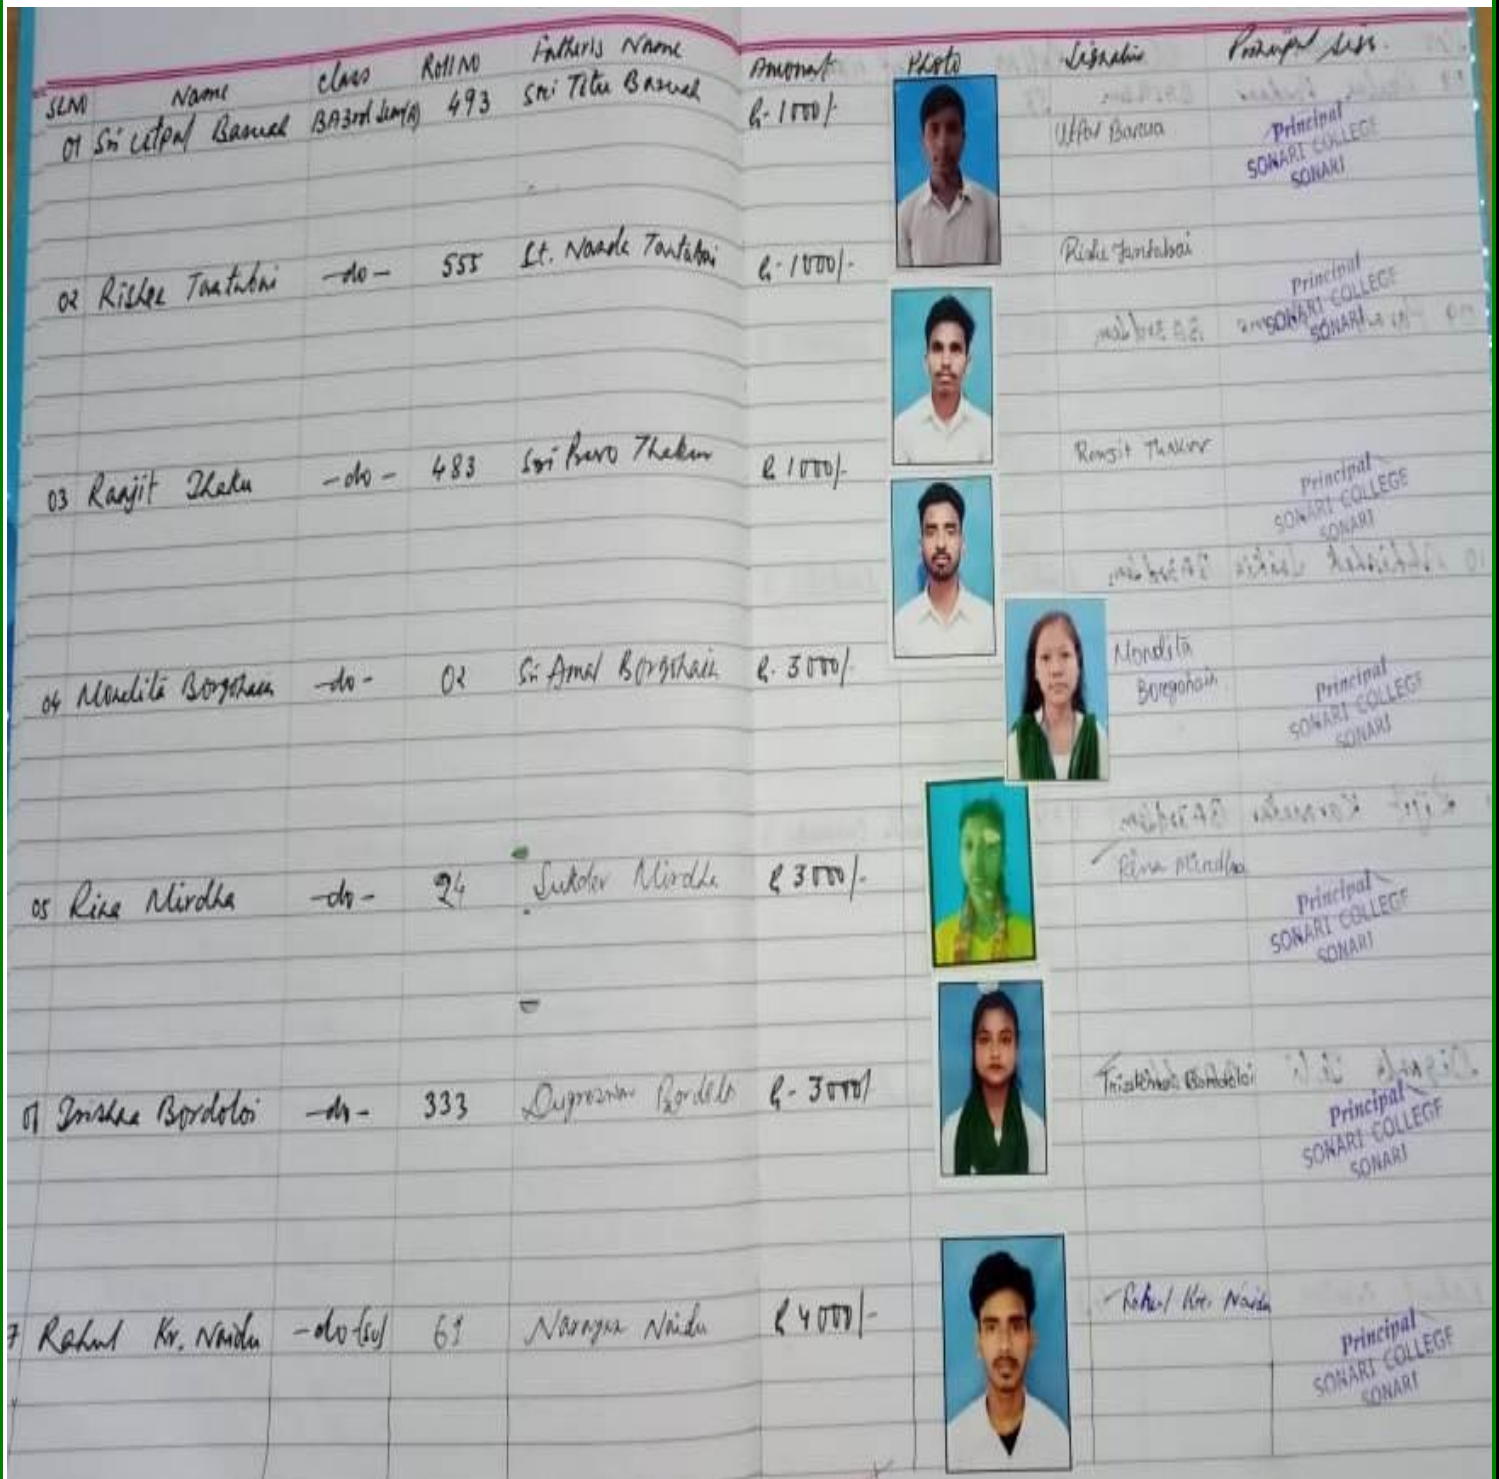 SLNO Name Class Roll NO Father's Name Amount Photo Signature Principal Sign.
01 Sri Utpal Baruah BA 3rd Sem(A) 493 Sri Titu Baruah Rs-1000/- Utpal Barua
Principal
SONARI COLLEGE
SONARI
02 Rishee Tantubai -do- 555 Lt. Tantubai Rs-1000/-
Principal
SONARI COLLEGE
SONARI
03 Ranjit Thaku -do- 483 Sri Thakur Rs 1000/- Ranjit Thakur
Principal
SONARI COLLEGE
SONARI
04 Mondita Borgohain -do- 02 Sri Amal Borgohain Rs. 3000/- Mondita
Boregohain
Principal
SONARI COLLEGE
SONARI
05 Rina Mirdha -do- 24 Sukdev Mirdha Rs 3000/- Rina Mirdha
Principal
SONARI COLLEGE
SONARI
Bordoloi -do- 333 Rs-3000/
Principal
SONARI COLLEGE
SONARI
7 Rahul Kr. Naidu -do- 61 Narayan Naidu Rs 4000/- Rahul Kr. Naidu
Principal
SONARI COLLEGE
SONARI